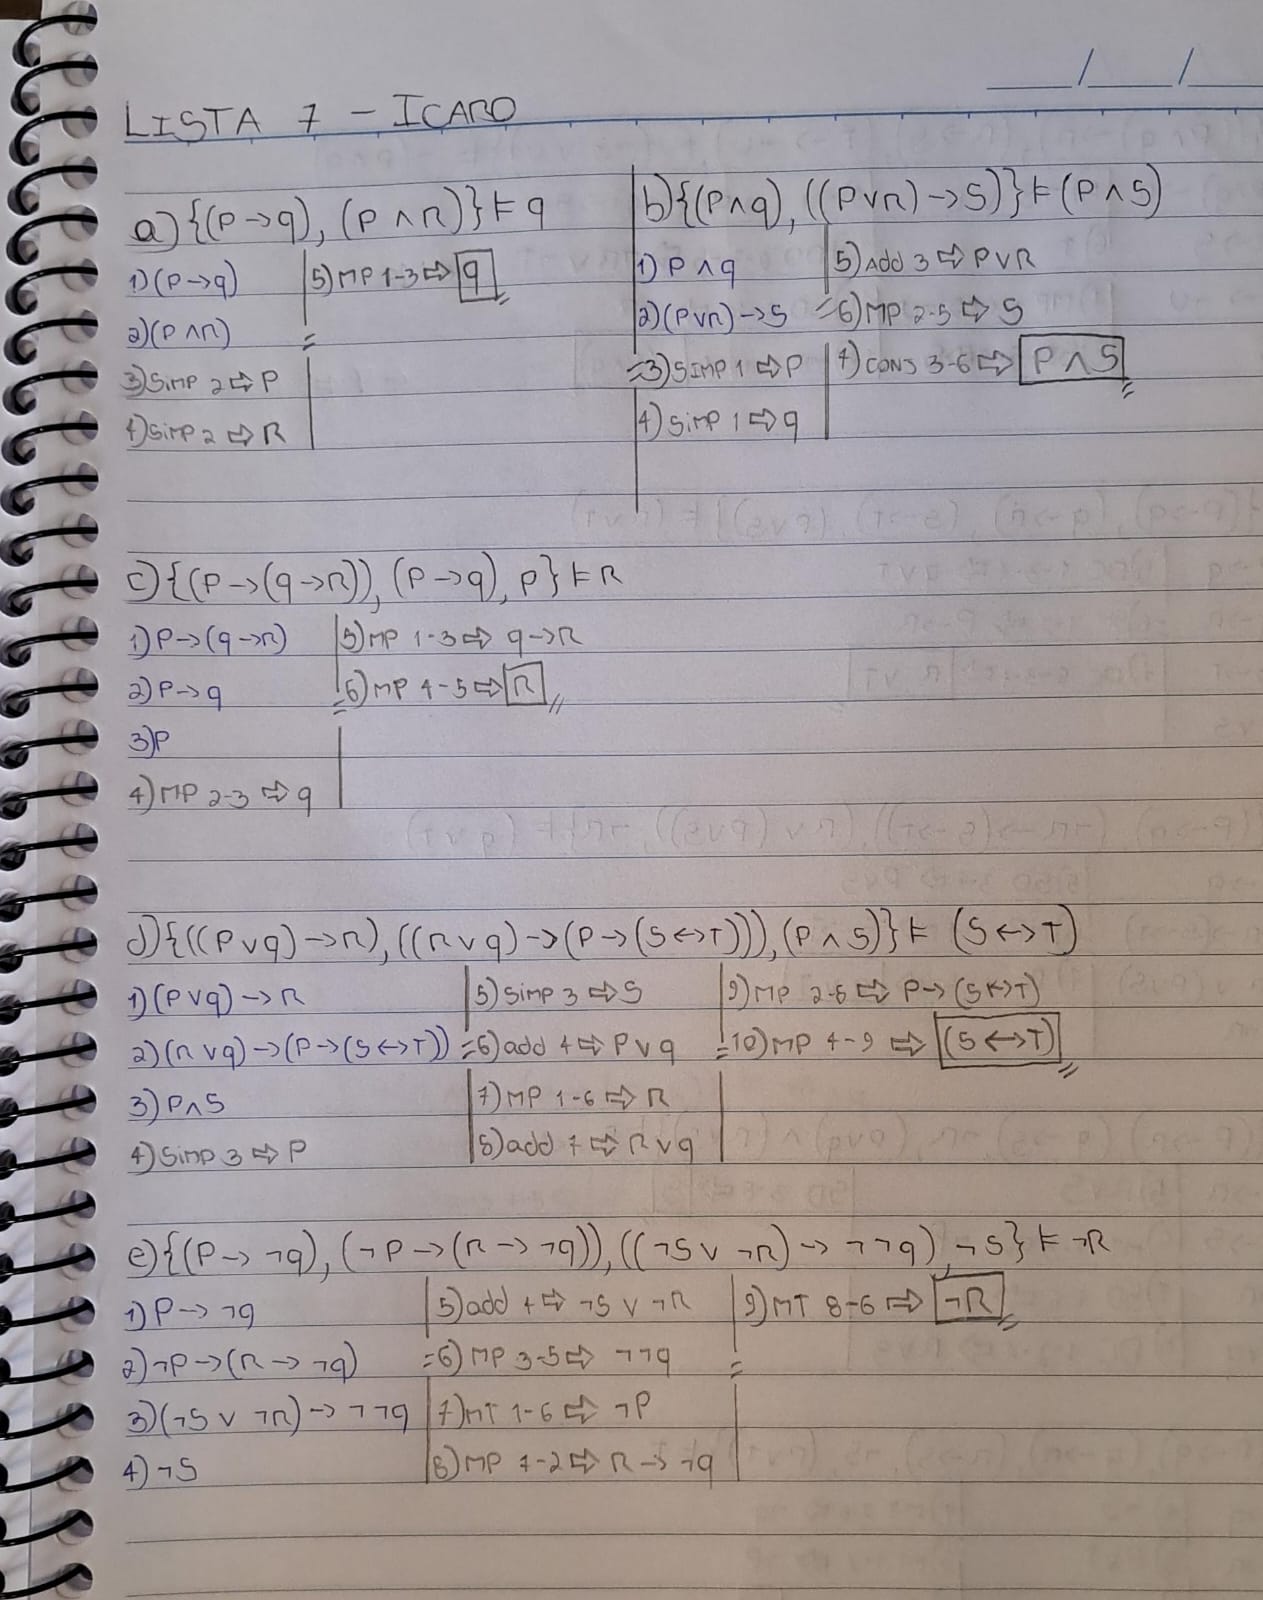 LISTA 7 - ICARO
a) {(P → q), (P ∧ R)} ⊨ q
1) (P → q)
2) (P ∧ R)
3) SIMP 2 ⇨ P
4) SIMP 2 ⇨ R
5) MP 1-3 ⇨ q
b) {(P ∧ q), ((P ∨ R) → S)} ⊨ (P ∧ S)
1) P ∧ q
2) (P ∨ R) → S
3) SIMP 1 ⇨ P
4) SIMP 1 ⇨ q
5) ADD 3 ⇨ P ∨ R
6) MP 2-5 ⇨ S
7) CONJ 3-6 ⇨ P ∧ S
c) {(P → (q → R)), (P → q), P} ⊨ R
1) P → (q → R)
2) P → q
3) P
4) MP 2-3 ⇨ q
5) MP 1-3 ⇨ q → R
6) MP 4-5 ⇨ R
d) {((P ∨ q) → R), ((R ∨ q) → (P → (S ↔ T))), (P ∧ S)} ⊨ (S ↔ T)
1) (P ∨ q) → R
2) (R ∨ q) → (P → (S ↔ T))
3) P ∧ S
4) SIMP 3 ⇨ P
5) SIMP 3 ⇨ S
6) add 4 ⇨ P ∨ q
7) MP 1-6 ⇨ R
8) add 7 ⇨ R ∨ q
9) MP 2-8 ⇨ P → (S ↔ T)
10) MP 4-9 ⇨ (S ↔ T)
e) {(P → ¬q), (¬P → (R → ¬q)), ((¬S ∨ ¬R) → ¬¬q), ¬S} ⊨ ¬R
1) P → ¬q
2) ¬P → (R → ¬q)
3) (¬S ∨ ¬R) → ¬¬q
4) ¬S
5) add 4 ⇨ ¬S ∨ ¬R
6) MP 3-5 ⇨ ¬¬q
7) MT 1-6 ⇨ ¬P
8) MP 7-2 ⇨ R → ¬q
9) MT 8-6 ⇨ ¬R